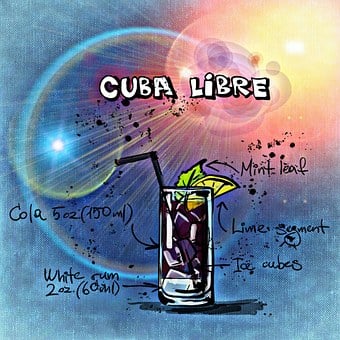 CUBA LiBRE
Mint leaf
Cola 5 oz (150 ml)
Lime segment
Ice cubes
White rum
2 oz. (60 ml)